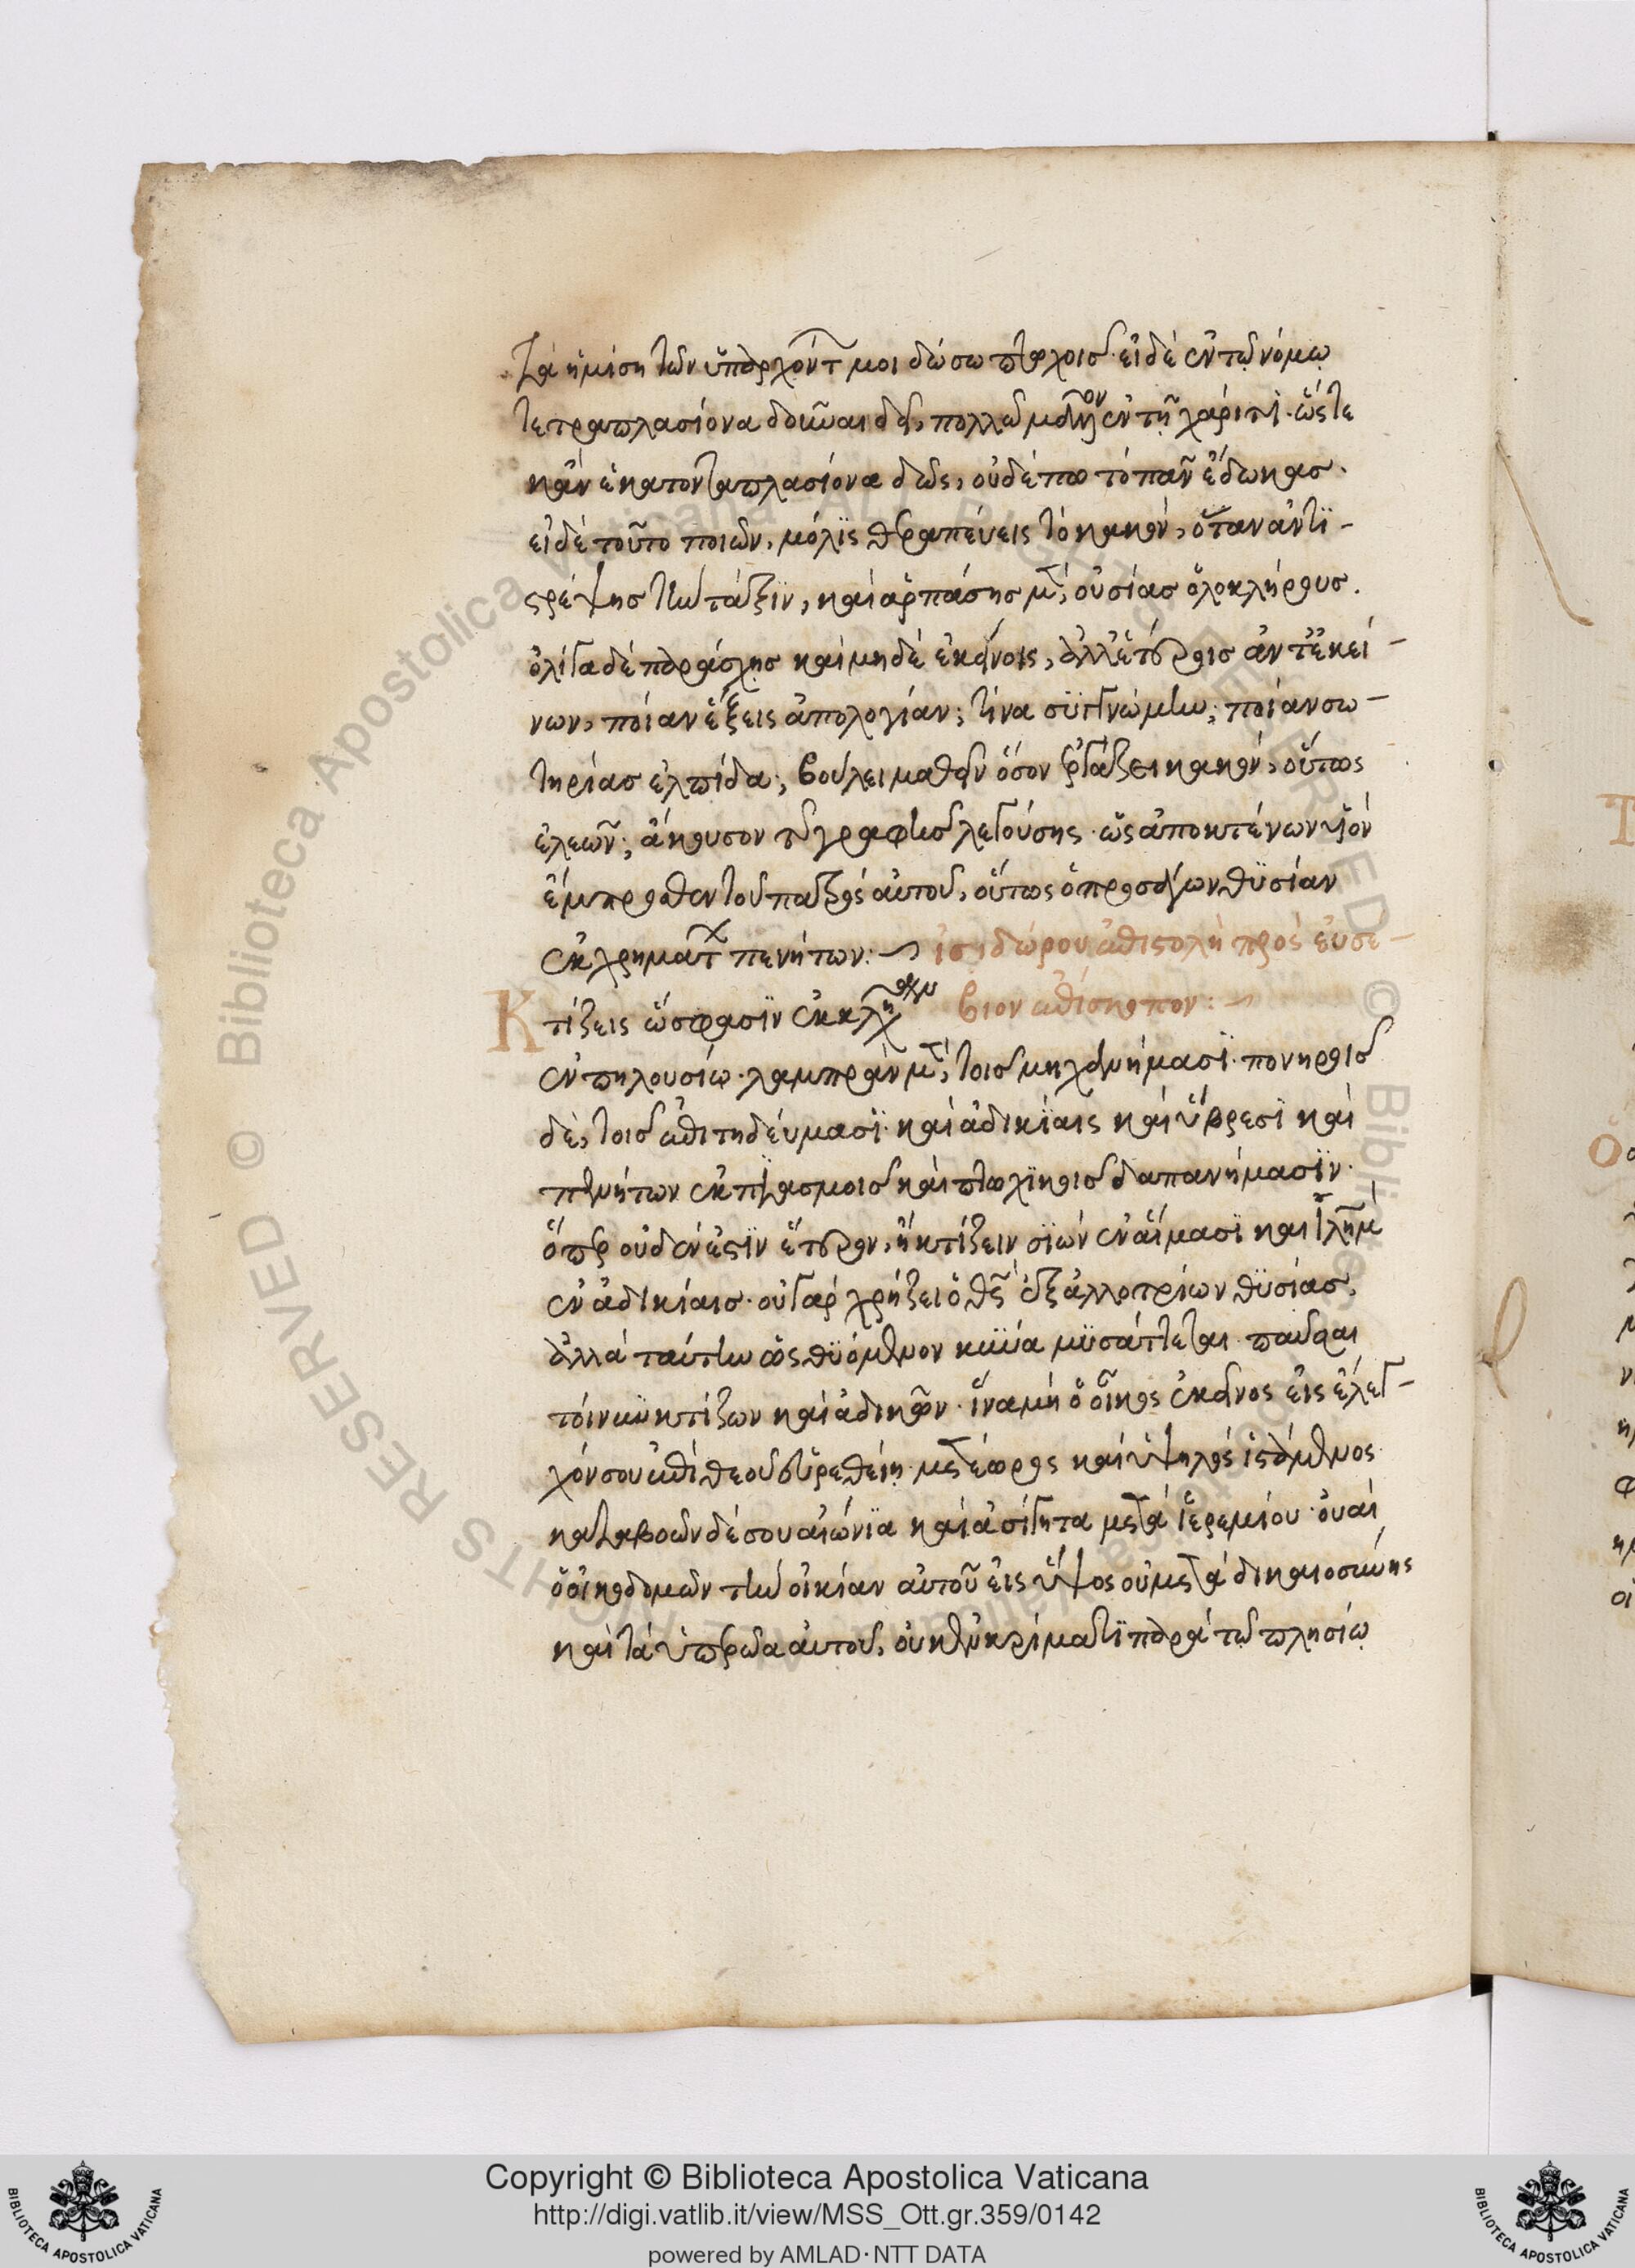 τὰ ἡμίση τῶν ὑπαρχόντ μοι δώσω πτωχοῖς· εἰ δὲ ἐν τῷ νόμῳ
τετραπλασίονα δοῦναι δεῖ, πολλῷ μᾶλλον ἐν τῇ χάριτι· ὥστε
κἂν ἑκατονταπλασίονα δῶς, οὐδέπω τὸ πᾶν ἔδωκας·
εἰ δὲ τοῦτο ποιῶν, μόλϊς θεραπεύεις τὸ κακόν, ὅταν ἀντϊ-
στρέψης τὴν τάξϊν, καὶ ἁρπάσης μὲν, οὐσίας ὁλοκλήρους.
ὀλίγα δὲ παράσχης καὶ μηδὲ ἐκείνοις, ἀλλ' ἑτέροις ἀντ' ἐκεί-
νων, ποίαν ἕξεις ἀπολογίαν; τίνα συγγνώμην; ποίαν σω-
τηρίας ἐλπίδα; βούλει μαθεῖν ὅσον ἐργάζει κακόν, οὕτως
ἐλεῶν; ἄκουσον τῆς γραφῆς λεγούσης· ὡς ἀποκτένων υἱὸν
ἔμπροσθεν τοῦ πατρὸς αὐτοῦ, οὕτως ὁ προσάγων θϋσίαν
ἐκ χρημάτ πενήτων:~ ἰσιδώρου ἐπιστολὴ πρὸς εὐσέ-
Κτίζεις ὥς φασϊν ἐκκλη βιον ἐπίσκοπον:~
ἐν πηλουσίω· λαμπρὰν μὲν, τοῖς μηχανήμασϊ· πονηροῖς
δὲ, τοῖς ἐπιτηδεύμασϊ· καὶ ἀδικίαις καὶ ὕβρεσϊ καὶ
πενήτων ἐκπϊασμοῖς καὶ πτωχϊκοῖς δαπανήμασϊν·
ὅπερ οὐδέν ἐστϊν ἕτερον, ἢ κτίζειν σϊὼν ἐν αἵμασϊ καὶ ϊλημ
ἐν ἀδικίαις· οὐ γὰρ χρήζει ὁ θς ἐξ ἀλλοτρίων θϋσίας,
ἀλλὰ ταύτην ὡς θϋόμενον κύνα μϋσάττεται· παῦσαι
τοίνυν κτίζων καὶ ἀδικῶν· ἵνα μὴ ὁ οἶκος ἐκεῖνος εἰς ἔλεγ-
χόν σου ἐπὶ θεοῦ εὑρεθείη· μετέωρος καὶ ὑψηλὸς ἱστάμενος·
καταβοῶν δέ σου αἰώνϊα καὶ ἀσίγητα μετὰ ἱερεμίου· οὐαὶ
ὁ οἰκοδομῶν τὴν οἰκίαν αὐτοῦ εἰς ὕψος οὐ μετὰ δικαιοσύνης
καὶ τὰ ὑπερῶα αὐτοῦ, οὐκ ἐν κρίματϊ παρὰ τῷ πλησίῳ
Copyright © Biblioteca Apostolica Vaticana
http://digi.vatlib.it/view/MSS_Ott.gr.359/0142
powered by AMLAD·NTT DATA